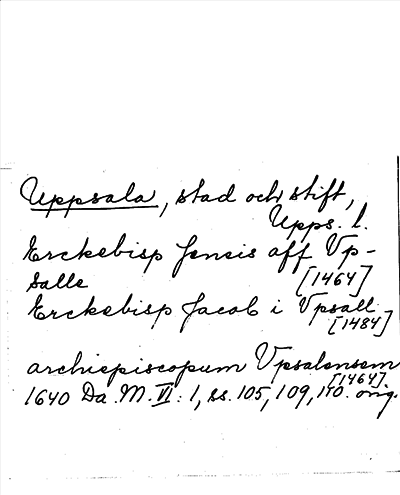 Uppsala, stad och stift,
Upps. l.
Erckebisp Jensis aff Vp-
salle [1464]
Erckebisp Jacob i Vpsall
[1484]
archiepiscopum Vpsalensem
[1464]
1640 Da. M. VI: 1, ss. 105, 109, 110. orig.